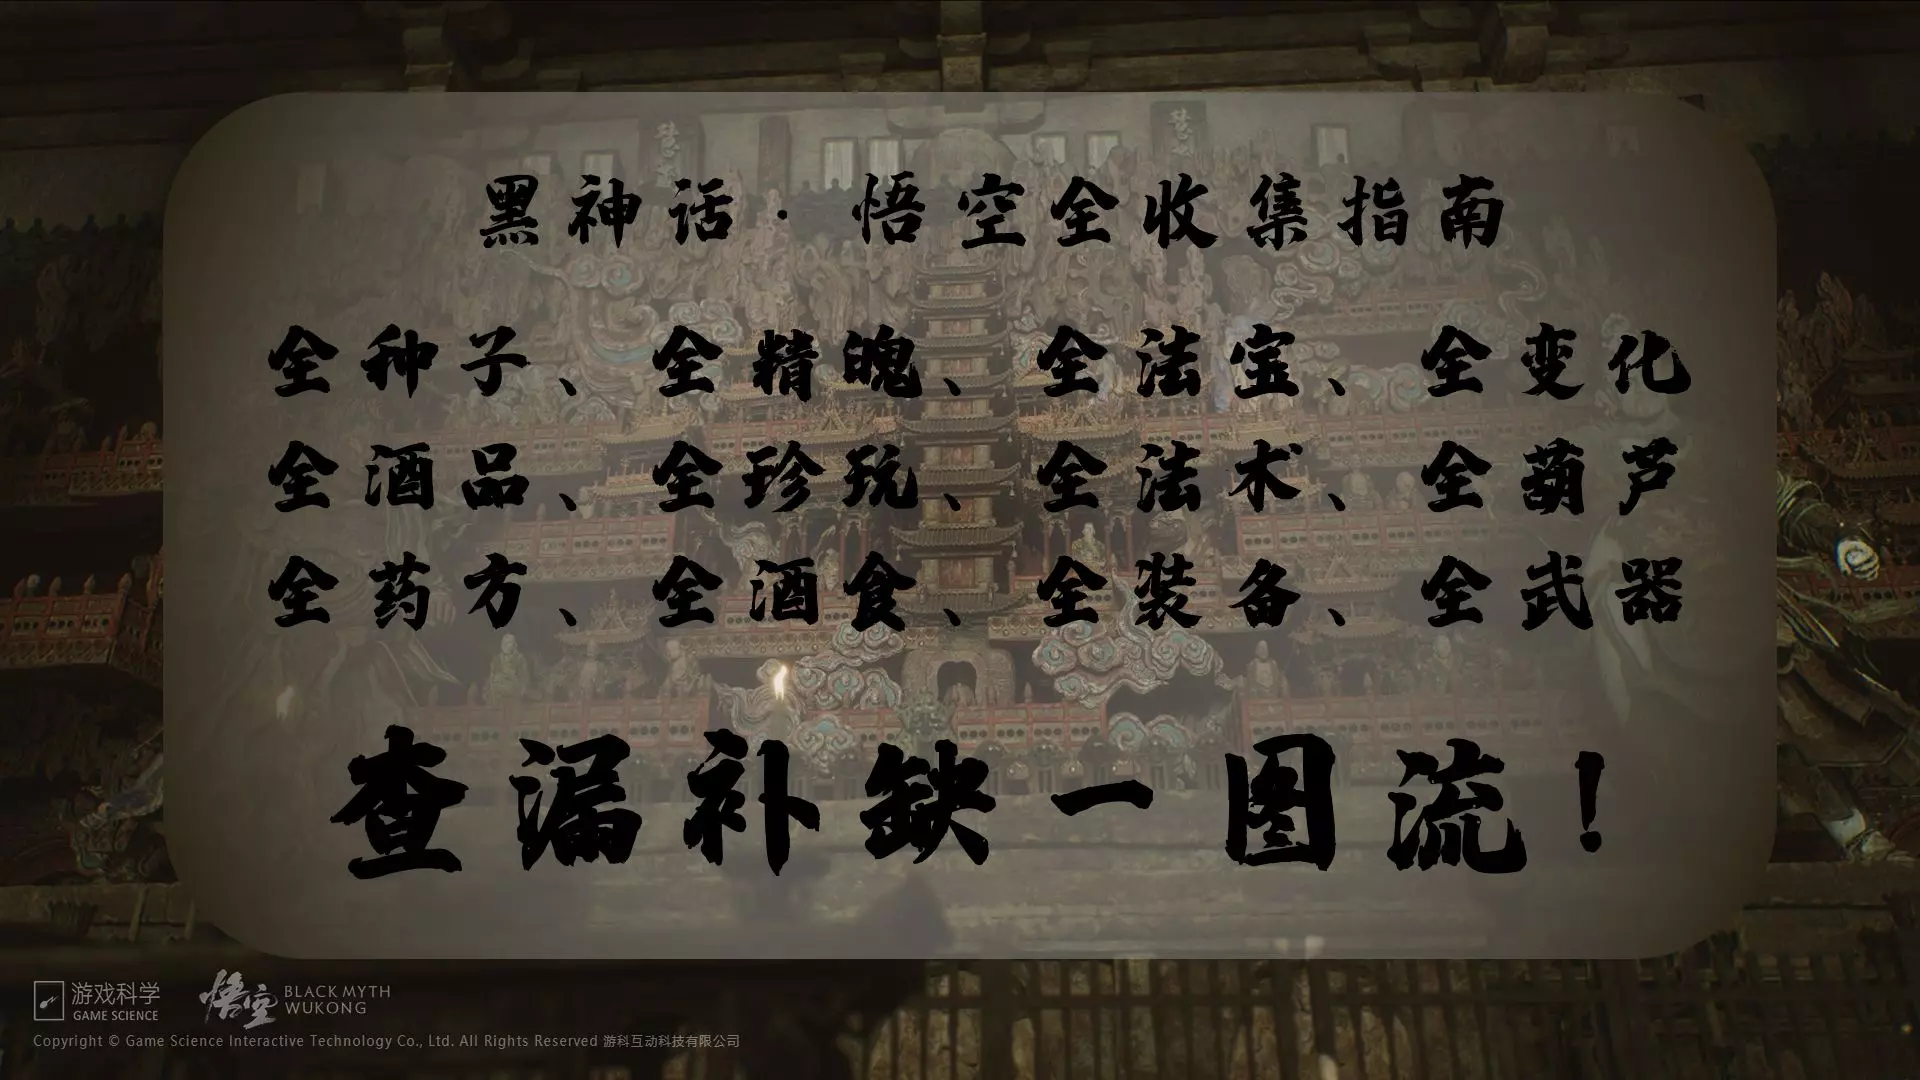 黑神话·悟空全收集指南
全种子、全精魄、全法宝、全变化
全酒品、全珍玩、全法术、全葫芦
全药方、全酒食、全装备、全武器
查漏补缺一图流！
游戏科学
GAME SCIENCE
悟空
BLACK MYTH
WUKONG
Copyright © Game Science Interactive Technology Co., Ltd. All Rights Reserved 游科互动科技有限公司